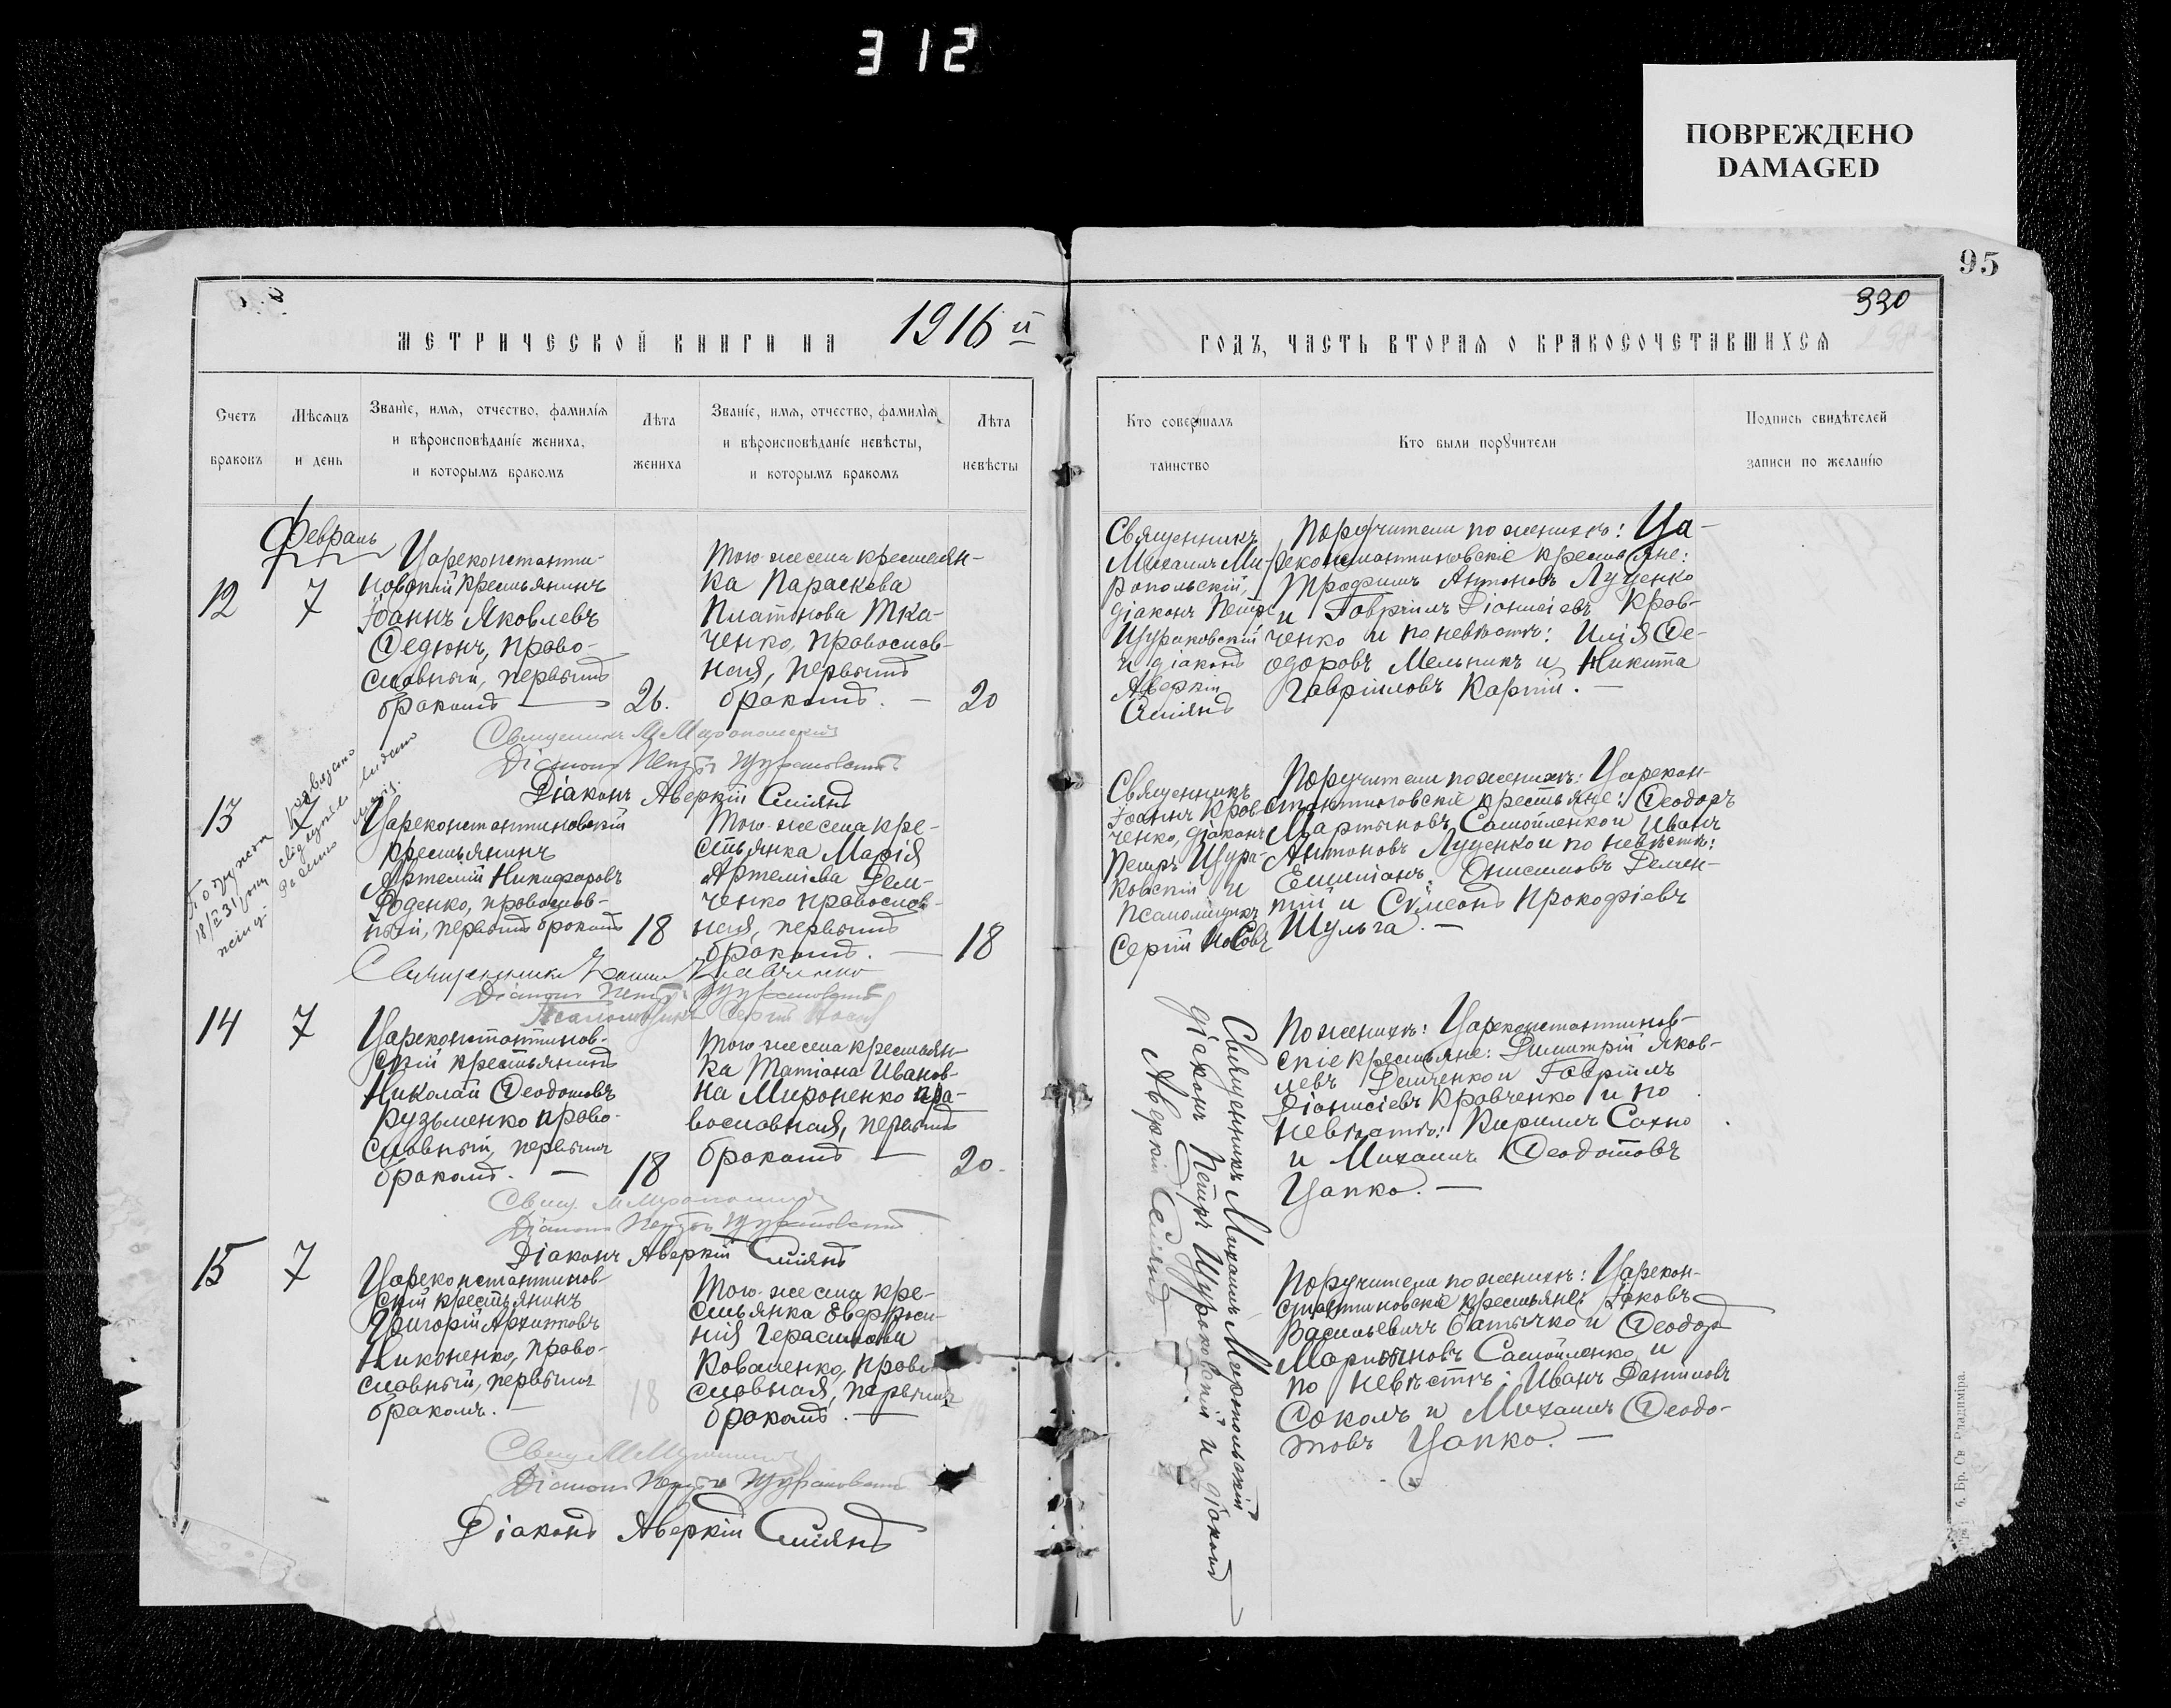 312
ПОВРЕЖДЕНО
DAMAGED
95
330
МЕТРИЧЕСКОЙ КНИГИ НА 1916 й
ГОДЪ, ЧАСТЬ ВТОРАЯ О БРАКОСОЧЕТАВШИХСЯ
Счетъ
браковъ
Мѣсяцъ
и день
Званіе, имя, отчество, фамилія
и вѣроисповѣданіе жениха,
и которымъ бракомъ
Лѣта
жениха
Званіе, имя, отчество, фамилія
и вѣроисповѣданіе невѣсты,
и которымъ бракомъ
Лѣта
невѣсты
Кто совершалъ
таинство
Кто были поручители
Подпись свидѣтелей
записи по желанію
Февраль
12
7
Цареконстанти-
новскій крестьянинъ
Іоаннъ Яковлевъ
Ѳедюнъ, право-
славный, первымъ
бракомъ —
26.
Того-же села крестьян-
ка Параскева
Платонова Тка-
ченко, православ-
ная, первымъ
бракомъ. —
20
Священникъ
Михаилъ Ми-
ропольскій,
діаконъ Петръ
Щураковскій
и діаконъ
Аверкій
Сміянъ
Поручители по женихѣ: Ца-
реконстантиновскіе крестьяне:
Трофимъ Антоновъ Луценко
и Гавріилъ Діонисіевъ Крав-
ченко и по невѣстѣ: Илія Ѳе-
одоровъ Мельникъ и Никита
Гавріиловъ Карпій. —
Священникъ М Миропольскій
Діаконъ Петръ Щураковскій
Діаконъ Аверкій Сміянъ
13
7
Цареконстантиновскій
крестьянинъ
Артемій Никифоровъ
Роденко, православ-
ный, первымъ бракомъ
18
Того-же села кре-
стьянка Марія
Артеміева Дем-
ченко православ-
ная, первымъ
бракомъ. —
18
Священникъ
Іоаннъ Крав-
ченко, діаконъ
Петръ Щура-
ковскій и
псаломщикъ
Сергій Носовъ
Поручители по женихѣ: Царекон-
стантиновскіе крестьяне: Ѳеодоръ
Мартыновъ Самойленко и Иванъ
Антоновъ Луценко и по невѣстѣ:
Емиліанъ Онисимовъ Демен-
тій и Сѵмеонъ Прокофіевъ
Шульга. —
Священникъ Іоаннъ Кравченко
Діаконъ Петръ Щураковскій
Псаломщикъ Сергій Носовъ
14
7
Цареконстантинов-
скій крестьянинъ
Николай Ѳеодотовъ
Кузьменко право-
славный, первымъ
бракомъ. —
18
Того-же села крестьян-
ка Татіана Иванов-
на Мироненко пра-
вославная, первымъ
бракомъ —
20.
Священникъ Михаилъ Миропольскій
діаконъ Петръ Щураковскій и діаконъ
Аверкій Сміянъ
По женихѣ: Цареконстантинов-
скіе крестьяне: Димитрій Яков-
левъ Демченко и Гавріилъ
Діонисіевъ Кравченко и по
невѣстѣ: Кириллъ Сахно
и Михаилъ Ѳеодотовъ
Цапко. —
Свящ. М Миропольскій
Діаконъ Петръ Щураковскій
Діаконъ Аверкій Сміянъ
15
7
Цареконстантинов-
скій крестьянинъ
Григорій Архиповъ
Никоненко, право-
славный, первымъ
бракомъ. —
18
Того-же села кре-
стьянка Евфроси-
нія Герасимова
Коваленко, право-
славная, первымъ
бракомъ. —
Поручители по женихѣ: Царекон-
стантиновскіе крестьяне: Іаковъ
Васильевичъ Батычко и Ѳеодоръ
Мартыновъ Самойленко и
по невѣстѣ: Иванъ Даниловъ
Соколъ и Михаилъ Ѳеодо-
товъ Цапко. —
Свящ М Миропольскій
Діаконъ Петръ Щураковскій
Діаконъ Аверкій Сміянъ
Бр. Св. Владиміра.